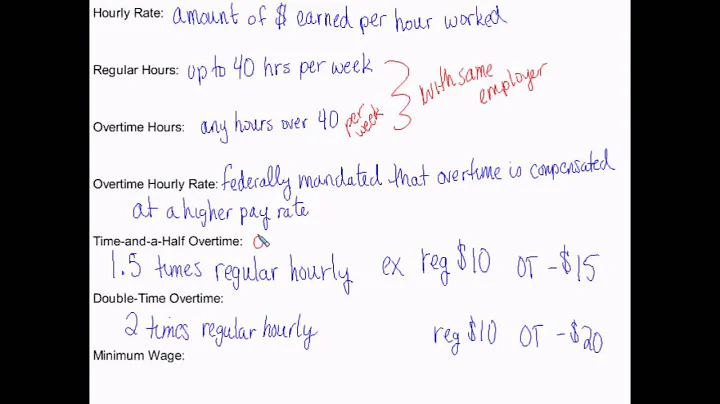 Hourly Rate: amount of $ earned per hour worked
Regular Hours: up to 40 hrs per week
with same employer
Overtime Hours: any hours over 40 per week
Overtime Hourly Rate: federally mandated that overtime is compensated
at a higher pay rate
Time-and-a-Half Overtime:
1.5 times regular hourly ex reg $10 OT - $15
Double-Time Overtime:
2 times regular hourly reg $10 OT - $20
Minimum Wage: